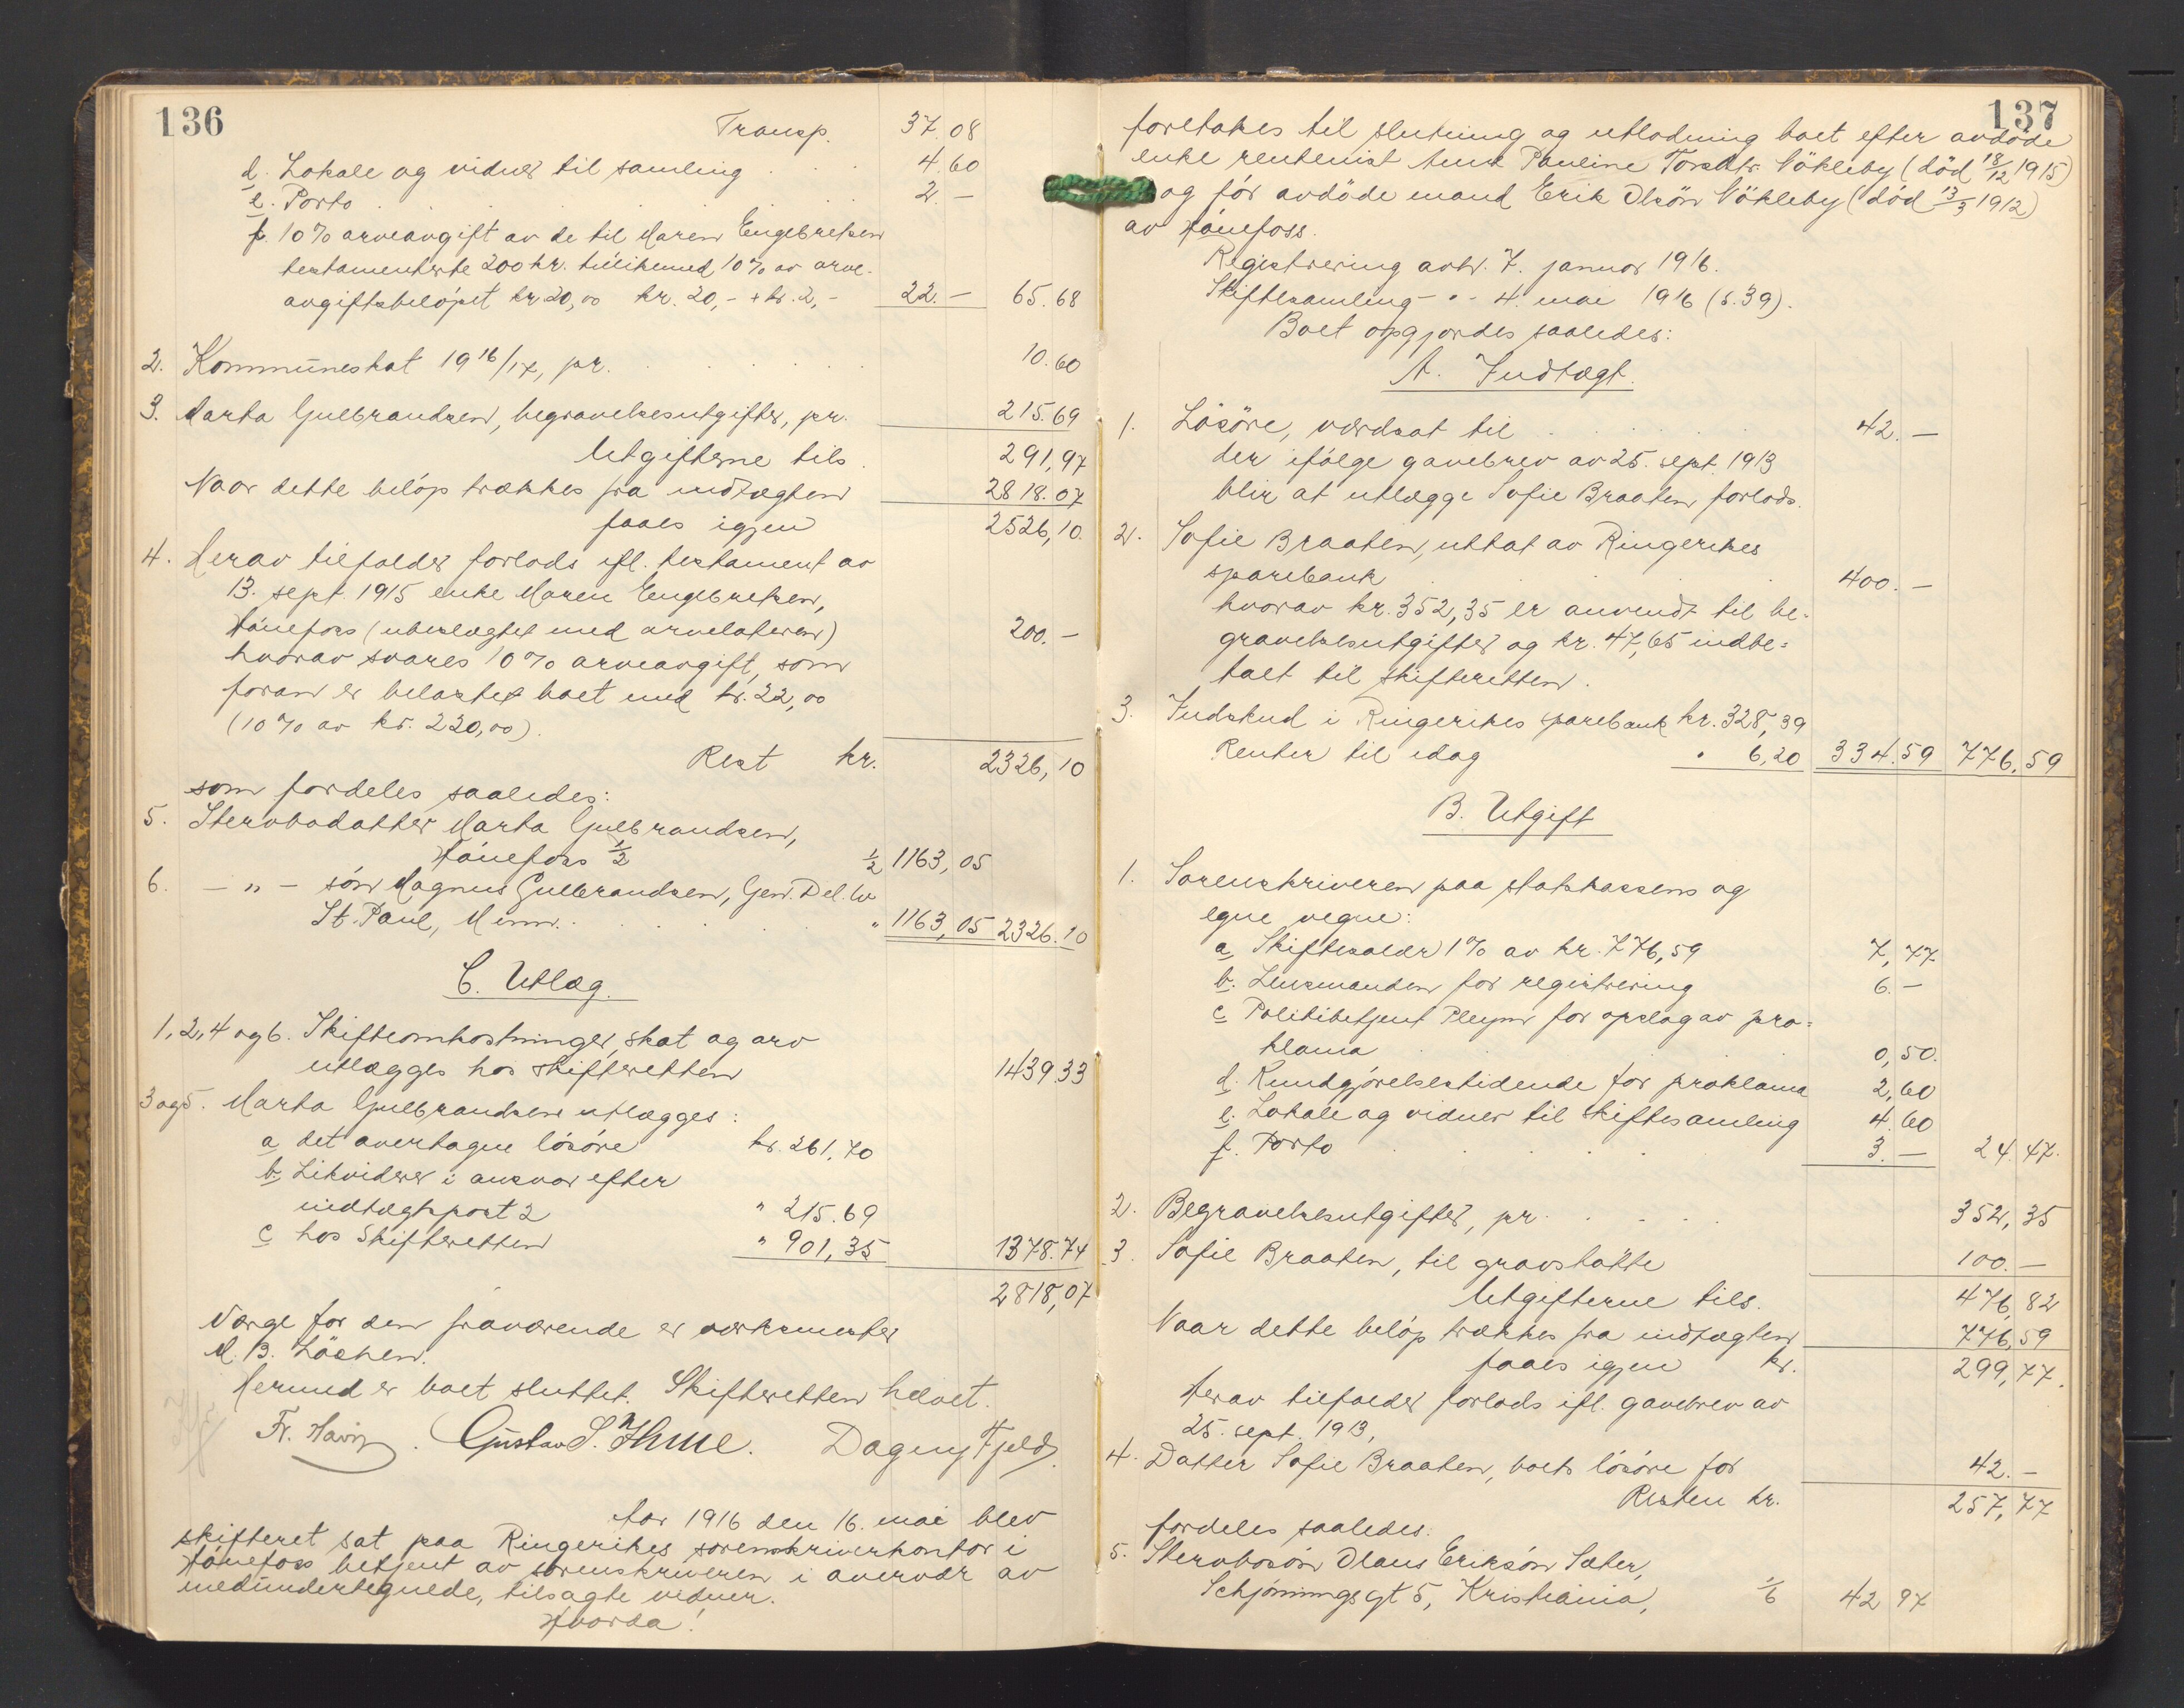 136
Transp. 37.08
d. Lokale og vidner til samling . . 4.60
e. Porto . . . . . . 2.-
f. 10% arveavgift av de til Maren Engebretsen
testamenterte 200 kr. tillikemed 10% av arve-
avgiftsbeløpet kr. 20,00 kr. 20,- + kr. 2,- 22.- 65.68
2. Kommuneskat 1916/17, pr. . . . . . 10.60
3. Marta Gulbrandsen, begravelsesutgifter, pr. 215.69
Utgifterne tils. 291,97
Naar dette beløp trækkes fra indtægten 2818.07
faaes igjen 2526,10.
4. Herav tilfalder forlods ifl. testament av
13. sept. 1915 enke Maren Engebretsen,
Hønefoss (ubeslægtet med arvelateren) 200.-
hvorav svares 10% arveavgift, som
foran er belastet boet med kr. 22,00
(10% av kr. 220,00).
Rest kr. 2326,10
som fordeles saaledes:
5. Stervbodatter Marta Gulbrandsen,
Hønefoss 1/2 1/2 1163,05
6. - " - søn Magnus Gulbrandsen, Gen. Del. to
St. Paul, Minn. . . . . " 1163,05 2326.10
C. Utlæg.
1, 2, 4 og 6. Skifteomkostninger, skat og arv
utlægges hos skifteretten 1439.33
3 og 5. Marta Gulbrandsen utlægges:
a det overtagne løsøre kr. 261,70
b. Likviderer i ansvar efter
indtægtspost 2 " 215.69
c hos Skifteretten " 901,35 1378.74
2818,07
Værge for den fraværende er verksmester
M. B. Løchen.
Hermed er boet sluttet. Skifteretten hævet.
Gustav S. Dagny Fjeld.
Aar 1916 den 16. mai blev
skifteret sat paa Ringerikes sorenskriverkontor i
Hønefoss betjent av sorenskriveren i overvær av
medundertegnede, tilsagte vidner.
Hvorda!
137
foretakes til slutning og utlodning boet efter avdøde
enke rentenist Anne Pauline Torsdtr. Nökleby (död 18/12 1915)
og før avdöde mand Erik Olsön Nökleby (död 13/3 1912)
av Hønefoss.
Registrering avh. 7. januar 1916.
Skiftesamling - " - 4. mai 1916 (s. 39).
Boet opgjordes saaledes:
A. Indtægt.
1. Løsøre, værdsat til . . . . . 42.-
der ifølge gavebrev av 25. sept. 1913
blir at utlægge Sofie Braaten forlods.
2. Sofie Braaten, uttat av Ringerikes
sparebank . . . . . 400.-
hvorav kr. 352,35 er anvendt til be-
gravelsesutgifter og kr. 47,65 indbe=
talt til skifteretten.
3. Indskud i Ringerikes sparebank kr. 328,39
Renter til idag " 6,20 334.59 776.59
B. Utgift
1. Sorenskriveren paa statskassens og
egne vegne:
a. Skiftesalær 1% av kr. 776,59 7,77
b. Lensmanden for registrering 6.-
c. Politibetjent Pleym for opslag av pro=
klama . . . . . 0,50.
d. Kundgjørelsestidende for proklama 2,60
e. Lokale og vidner til skiftesamling 4.60
f. Porto . . . . . 3.- 24.47.
2. Begravelsesutgifter, pr. . . . . 352,35
3. Sofie Braaten, til gravstøtte 100.-
Utgifterne tils. 476,82
Naar dette beløp trækkes fra indtægten 776,59
faaes igjen kr. 299,77.
Herav tilfalder forlods ifl. gavebrev av
25. sept. 1913,
4. Datter Sofie Braaten, boets løsøre for 42.-
Resten kr. 257,77
fordeles saaledes:
5. Stervbosøn Olaus Eriksøn Sæter,
Schjøningsgt 5, Kristiania, 1/6 42 97